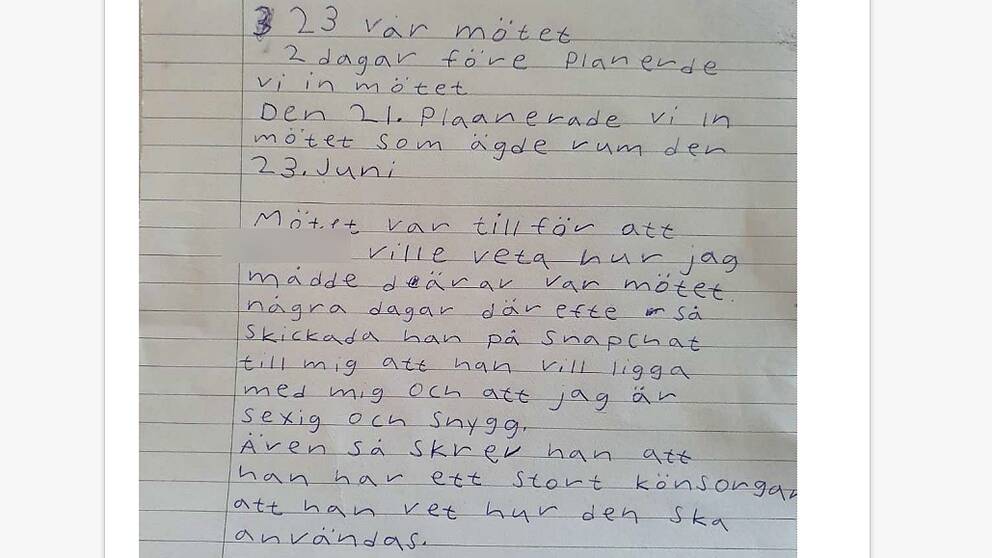 3 23 var mötet
2 dagar före planerde
vi in mötet
Den 21. Plaanerade vi in
mötet som ägde rum den
23. Juni
Mötet var till för att
ville veta hur jag
mådde därav var mötet.
några dagar där efte så
skickada han på snapchat
till mig att han vill ligga
med mig och att jag är
sexig och snygg.
Även så skrev han att
han har ett stort könsorgan
att han vet hur den ska
användas.